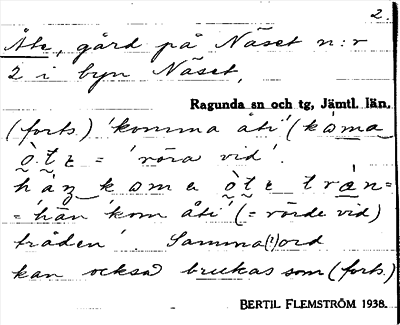 2.
Åte, gård på Näset n:r
2 i byn Näset,
Ragunda sn och tg, Jämtl. län.
(forts.) 'komma åti' (kåma
òte = 'röra vid'.
han kåma òte træn=
= 'han kom åti' (= rörde vid)
tråden'. Samma (!) ord
kan också brukas som (forts.)
BERTIL FLEMSTRÖM 1938.